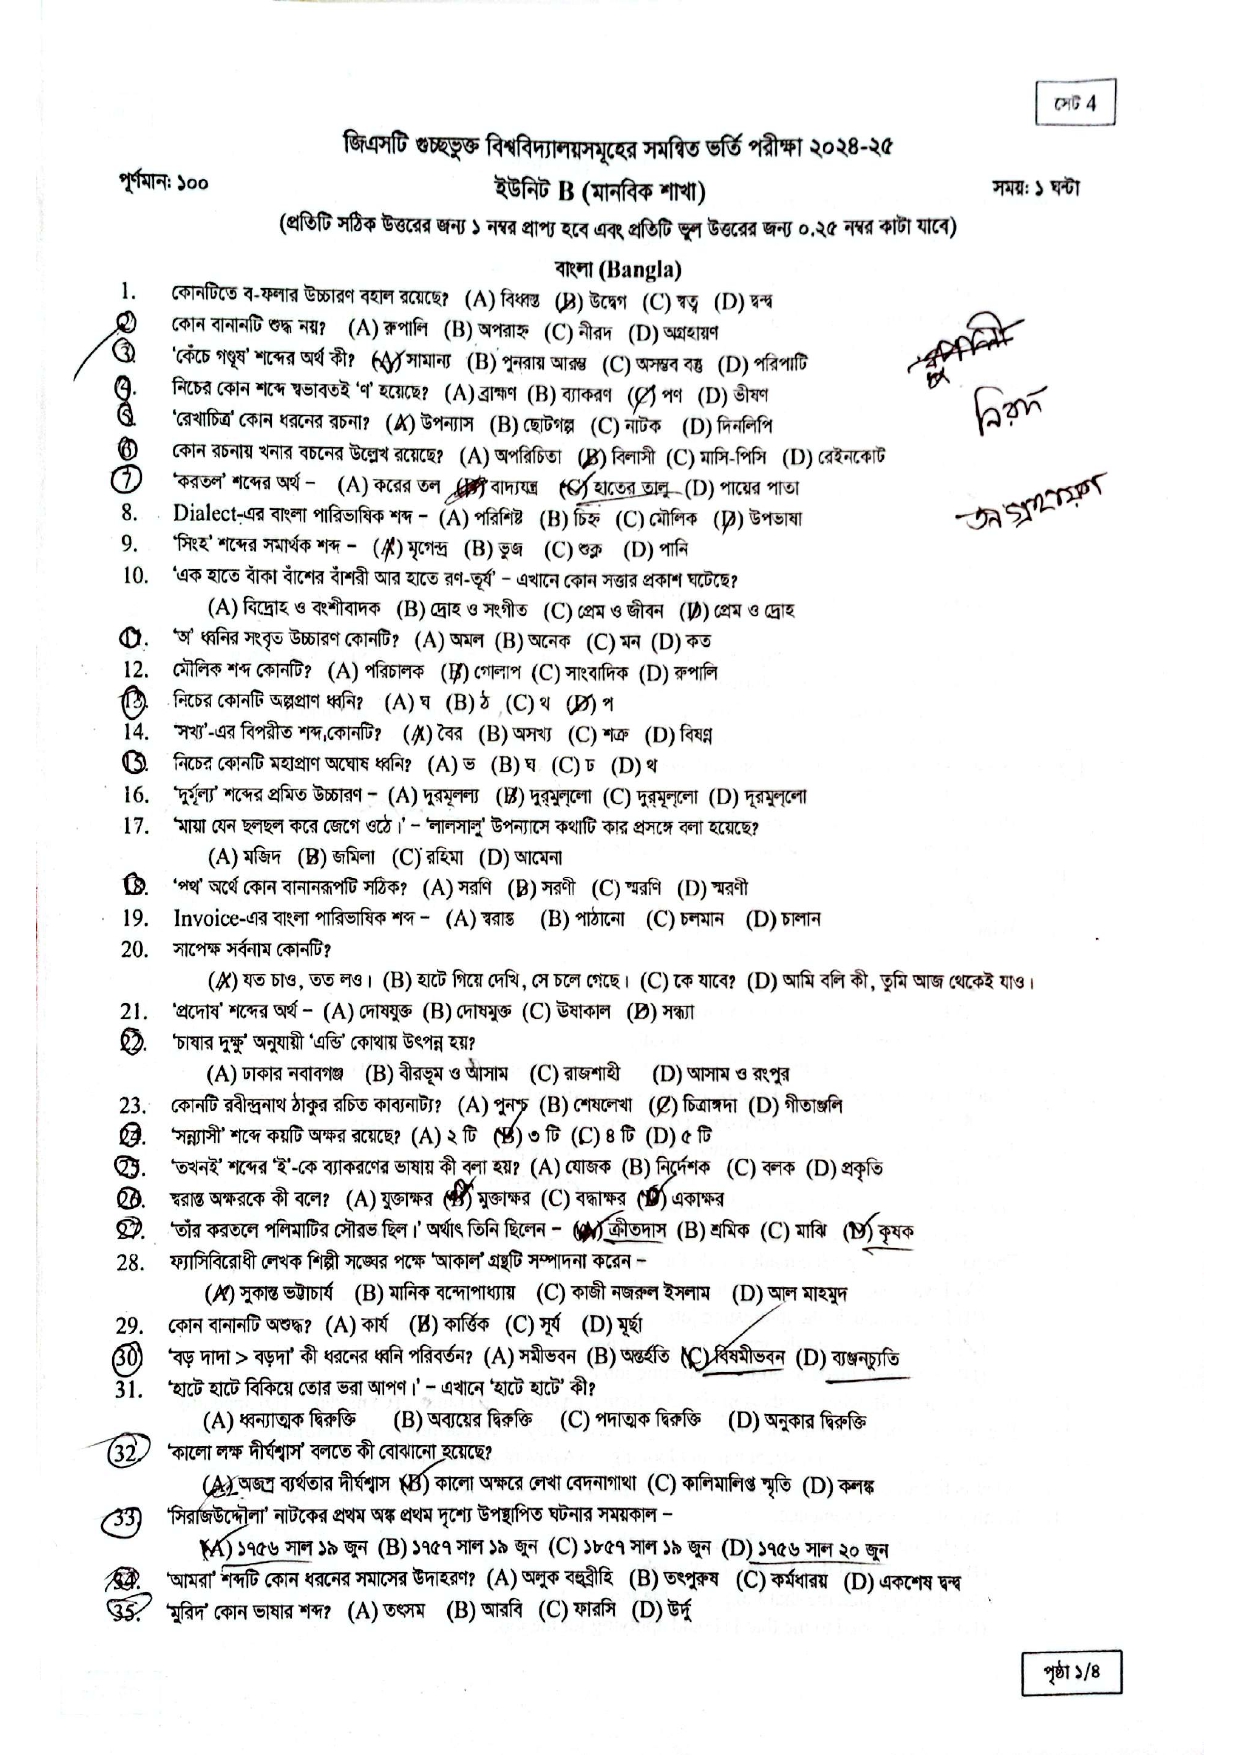 সেট 4
জিএসটি গুচ্ছভুক্ত বিশ্ববিদ্যালয়সমূহের সমন্বিত ভর্তি পরীক্ষা ২০২৪-২৫
পূর্ণমান: ১০০ ইউনিট B (মানবিক শাখা) সময়: ১ ঘন্টা
(প্রতিটি সঠিক উত্তরের জন্য ১ নম্বর প্রাপ্য হবে এবং প্রতিটি ভুল উত্তরের জন্য ০.২৫ নম্বর কাটা যাবে)
বাংলা (Bangla)
1. কোনটিতে ব-ফলার উচ্চারণ বহাল রয়েছে? (A) বিধ্বস্ত (B) উদ্বেগ (C) স্বত্ব (D) দ্বন্দ্ব
2. কোন বানানটি শুদ্ধ নয়? (A) রুপালি (B) অপরাহ্ণ (C) নীরদ (D) অগ্রহায়ণ
রুপালী
3. 'কেঁচে গণ্ডূষ' শব্দের অর্থ কী? (A) সামান্য (B) পুনরায় আরম্ভ (C) অসম্ভব বস্তু (D) পরিপাটি
4. নিচের কোন শব্দে স্বভাবতই 'ণ' হয়েছে? (A) ব্রাহ্মণ (B) ব্যাকরণ (C) পণ (D) ভীষণ
নিরদ
5. 'রেখাচিত্র' কোন ধরনের রচনা? (A) উপন্যাস (B) ছোটগল্প (C) নাটক (D) দিনলিপি
6. কোন রচনায় খনার বচনের উল্লেখ রয়েছে? (A) অপরিচিতা (B) বিলাসী (C) মাসি-পিসি (D) রেইনকোট
7. 'করতল' শব্দের অর্থ – (A) করের তল (B) বাদ্যযন্ত্র (C) হাতের তালু (D) পায়ের পাতা
8. Dialect-এর বাংলা পারিভাষিক শব্দ – (A) পরিশিষ্ট (B) চিহ্ন (C) মৌলিক (D) উপভাষা
9. 'সিংহ' শব্দের সমার্থক শব্দ – (A) মৃগেন্দ্র (B) ভুজ (C) শুক্ল (D) পানি
10. 'এক হাতে বাঁকা বাঁশের বাঁশরী আর হাতে রণ-তূর্য' – এখানে কোন সত্তার প্রকাশ ঘটেছে?
(A) বিদ্রোহ ও বংশীবাদক (B) দ্রোহ ও সংগীত (C) প্রেম ও জীবন (D) প্রেম ও দ্রোহ
11. 'অ' ধ্বনির সংবৃত উচ্চারণ কোনটি? (A) অমল (B) অনেক (C) মন (D) কত
12. মৌলিক শব্দ কোনটি? (A) পরিচালক (B) গোলাপ (C) সাংবাদিক (D) রুপালি
13. নিচের কোনটি অল্পপ্রাণ ধ্বনি? (A) ঘ (B) ঠ (C) থ (D) প
14. 'সখ্য'-এর বিপরীত শব্দ কোনটি? (A) বৈর (B) অসখ্য (C) শত্রু (D) বিষণ্ণ
15. নিচের কোনটি মহাপ্রাণ অঘোষ ধ্বনি? (A) ভ (B) ঘ (C) ঢ (D) থ
16. 'দুর্মূল্য' শব্দের প্রমিত উচ্চারণ – (A) দুরমূলল্য (B) দুর্‌মুল্‌লো (C) দুর্‌মূল্‌লো (D) দূরমুল্‌লো
17. 'মায়া যেন ছলছল করে জেগে ওঠে।' – 'লালসালু' উপন্যাসে কথাটি কার প্রসঙ্গে বলা হয়েছে?
(A) মজিদ (B) জমিলা (C) রহিমা (D) আমেনা
18. 'পথ' অর্থে কোন বানানরূপটি সঠিক? (A) সরণি (B) সরণী (C) স্মরণি (D) স্মরণী
19. Invoice-এর বাংলা পারিভাষিক শব্দ – (A) স্বরান্ত (B) পাঠানো (C) চলমান (D) চালান
20. সাপেক্ষ সর্বনাম কোনটি?
(A) যত চাও, তত লও। (B) হাটে গিয়ে দেখি, সে চলে গেছে। (C) কে যাবে? (D) আমি বলি কী, তুমি আজ থেকেই যাও।
21. 'প্রদোষ' শব্দের অর্থ – (A) দোষযুক্ত (B) দোষমুক্ত (C) উষাকাল (D) সন্ধ্যা
22. 'চাষার দুক্ষু' অনুযায়ী 'এন্ডি' কোথায় উৎপন্ন হয়?
(A) ঢাকার নবাবগঞ্জ (B) বীরভূম ও আসাম (C) রাজশাহী (D) আসাম ও রংপুর
23. কোনটি রবীন্দ্রনাথ ঠাকুর রচিত কাব্যনাট্য? (A) পুনশ্চ (B) শেষলেখা (C) চিত্রাঙ্গদা (D) গীতাঞ্জলি
24. 'সন্ন্যাসী' শব্দে কয়টি অক্ষর রয়েছে? (A) ২ টি (B) ৩ টি (C) ৪ টি (D) ৫ টি
25. 'তখনই' শব্দের 'ই'-কে ব্যাকরণের ভাষায় কী বলা হয়? (A) যোজক (B) নির্দেশক (C) বলক (D) প্রকৃতি
26. স্বরান্ত অক্ষরকে কী বলে? (A) যুক্তাক্ষর (B) মুক্তাক্ষর (C) বদ্ধাক্ষর (D) একাক্ষর
27. 'তাঁর করতলে পলিমাটির সৌরভ ছিল।' অর্থাৎ তিনি ছিলেন – (A) ক্রীতদাস (B) শ্রমিক (C) মাঝি (D) কৃষক
28. ফ্যাসিবিরোধী লেখক শিল্পী সঙ্ঘের পক্ষে 'আকাল' গ্রন্থটি সম্পাদনা করেন –
(A) সুকান্ত ভট্টাচার্য (B) মানিক বন্দোপাধ্যায় (C) কাজী নজরুল ইসলাম (D) আল মাহমুদ
29. কোন বানানটি অশুদ্ধ? (A) কার্য (B) কার্ত্তিক (C) সূর্য (D) মূর্ছা
30. 'বড় দাদা > বড়দা' কী ধরনের ধ্বনি পরিবর্তন? (A) সমীভবন (B) অন্তর্হতি (C) বিষমীভবন (D) ব্যঞ্জনচ্যুতি
31. 'হাটে হাটে বিকিয়ে তোর ভরা আপণ।' – এখানে 'হাটে হাটে' কী?
(A) ধ্বন্যাত্মক দ্বিরুক্তি (B) অব্যয়ের দ্বিরুক্তি (C) পদাত্মক দ্বিরুক্তি (D) অনুকার দ্বিরুক্তি
32. 'কালো লক্ষ দীর্ঘশ্বাস' বলতে কী বোঝানো হয়েছে?
(A) অজস্র ব্যর্থতার দীর্ঘশ্বাস (B) কালো অক্ষরে লেখা বেদনাগাথা (C) কালিমালিপ্ত স্মৃতি (D) কলঙ্ক
33. 'সিরাজউদ্দৌলা' নাটকের প্রথম অঙ্ক প্রথম দৃশ্যে উপস্থাপিত ঘটনার সময়কাল –
(A) ১৭৫৬ সাল ১৯ জুন (B) ১৭৫৭ সাল ১৯ জুন (C) ১৮৫৭ সাল ১৯ জুন (D) ১৭৫৬ সাল ২০ জুন
34. 'আমরা' শব্দটি কোন ধরনের সমাসের উদাহরণ? (A) অলুক বহুব্রীহি (B) তৎপুরুষ (C) কর্মধারয় (D) একশেষ দ্বন্দ্ব
35. 'মুরিদ' কোন ভাষার শব্দ? (A) তৎসম (B) আরবি (C) ফারসি (D) উর্দু
পৃষ্ঠা ১/৪